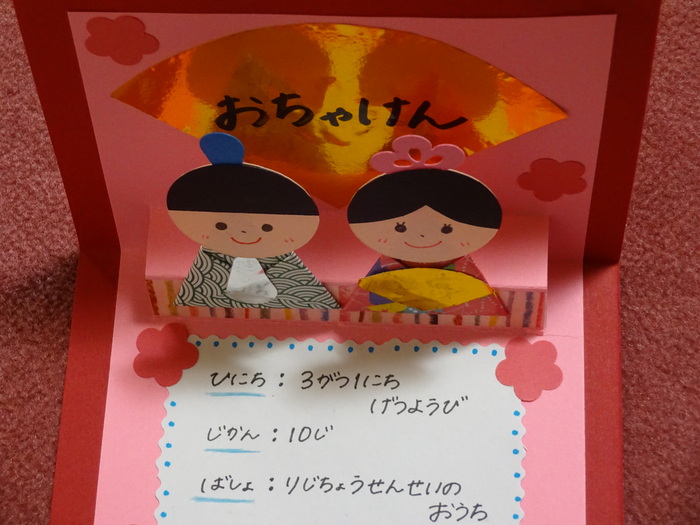 おちゃけん
ひにち：3がつ1にち
げつようび
じかん：10じ
ばしょ：りじちょうせんせいの
おうち